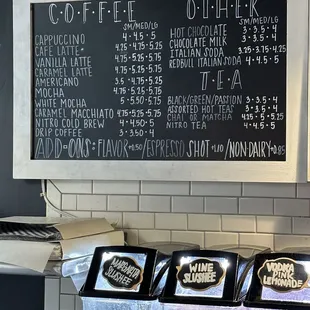 COFFEE
SM/MED/LG
CAPPUCCINO 4•4.5•5
CAFE LATTE 4.25•4.75•5.25
VANILLA LATTE 4.75•5.25•5.75
CARAMEL LATTE 4.75•5.25•5.75
AMERICANO 3.5•4.5
MOCHA 4.75•5.25•5.75
WHITE MOCHA 5•5.50•5.75
CARAMEL MACCHIATO 4.75•5.25•5.75
NITRO COLD BREW 4•4.50•5
DRIP COFFEE 3•3.50•4
OTHER
SM/MED/LG
HOT CHOCOLATE 3•3.5•4
CHOCOLATE MILK 3•3.5•4
ITALIAN SODA 3.25•3.75•4.25
REDBULL ITALIAN SODA 4•4.5•5
TEA
BLACK/GREEN/PASSION 3•3.5•4
ASSORTED HOT TEAS 3•3.5•4
CHAI OR MATCHA 4.25•5•5.25
NITRO TEA 4•4.5•5
ADD-ONS: FLAVOR +.50/ESPRESSO SHOT +1.10/NON-DAIRY +0.85
MARGARITA
SLUSHEE
WINE
SLUSHEE
VODKA
PINK
LEMONADE